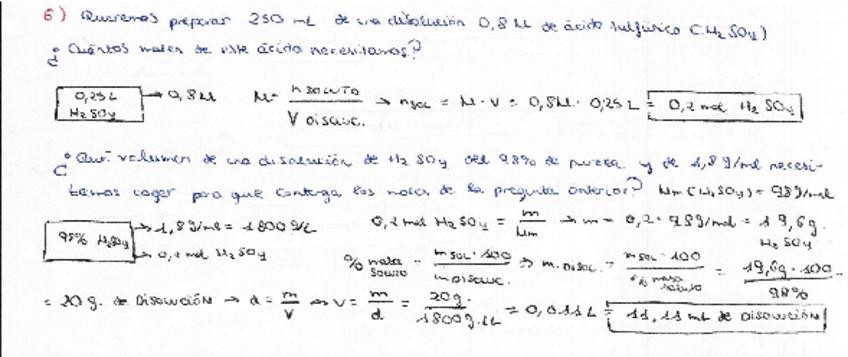 6) Queremos preparar 250 mL de una disolución 0,8 M de ácido sulfúrico (H₂SO₄)
¿Cuántos moles de este ácido necesitamos?
0,25 L H₂SO₄ → 0,8M M = n soluto / V disoluc. → nsol = M · V = 0,8M · 0,25 L = 0,2 mol H₂SO₄
¿Qué volumen de una disolución de H₂SO₄ del 98% de pureza y de 1,8 g/ml necesi-
tamos coger para que contenga los moles de la pregunta anterior? Mm (H₂SO₄) = 98 g/mol
98% H₂SO₄ → 1,8 g/ml = 1800 g/L 0,2 mol H₂SO₄ = m / Mm → m = 0,2 · 98 g/mol = 19,6 g. H₂SO₄
→ 0,2 mol H₂SO₄ % masa soluto = msol · 100 / mdisoluc. ⇒ m. disol. = msol · 100 / % masa soluto = 19,6g · 100 / 98%
= 20 g. de Disolución → d = m / V → V = m / d = 20g. / 1800 g/L = 0,011 L = 11,11 mL de Disolución